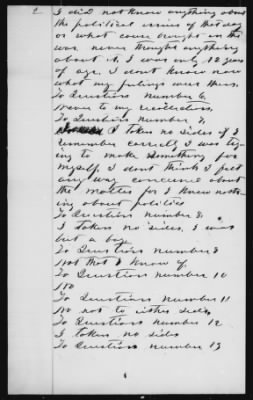 2
I did not know anything about
the political issues of that day
or what cause brought on the
war never thought anything
about it. I was only 12 years
of age. I dont know now
what my feelings were then.
To Question Number 6
Never to my recollection
To Question Number 7,
I taken no sides if I
remember correctly I was try-
ing to make something for
myself I dont think I felt
any way concerned about
the matter for I knew noth-
ing about politics
To Question Number 8,
I taken no sides, I was
but a boy.
To Question Number 9
Not that I know of.
To Question Number 10
No
To Question Number 11
No not to either side,
To Question Number 12
I taken no sides
To Question Number 13